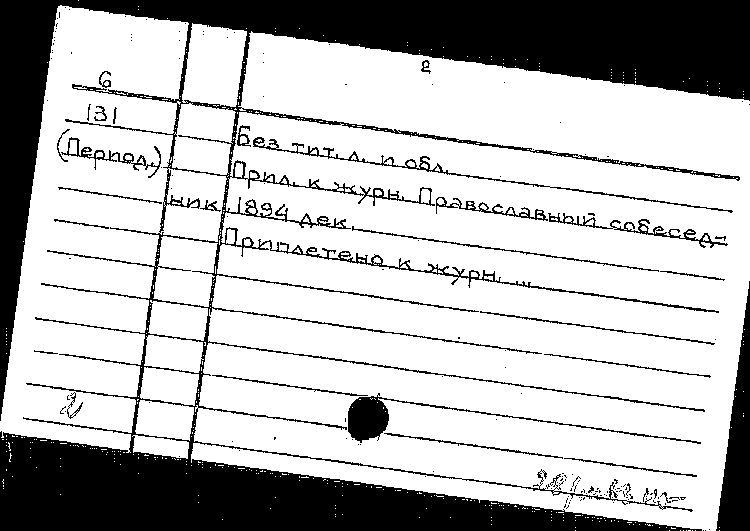 2
6
131
(Период.)
Без тит. л. и обл.
Прил. к журн. Православный собесед-
ник 1894 дек.
Приплетено к журн. ...
2